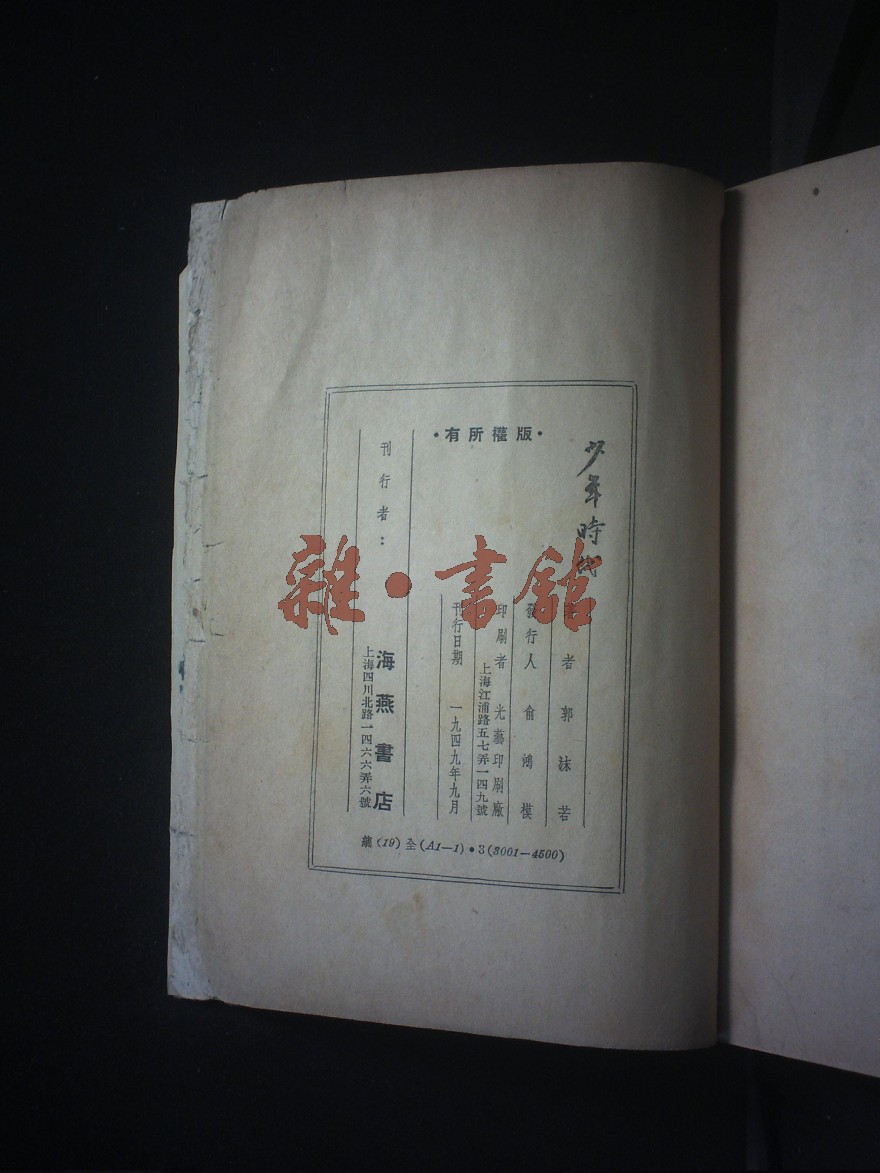 少年時代
·版權所有·
著者 郭沫若
發行人 俞鴻模
印刷者 光藝印刷廠
上海江浦路五七弄一四九號
刊行日期 一九四九年九月
刊行者： 海燕書店
上海四川北路一四六六弄六號
總(19)全(A1—1)•3(3001—4500)
雜·書館